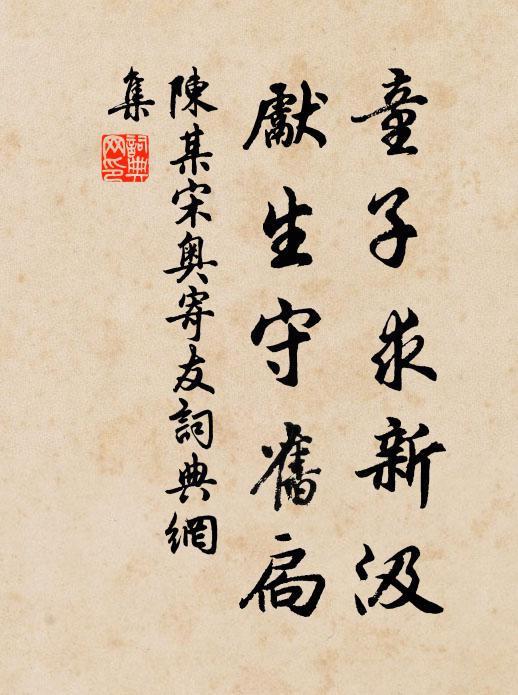 童子求新汲
獻生守舊扃
陳某宋奧寄友詞典網
集
詞典
网印